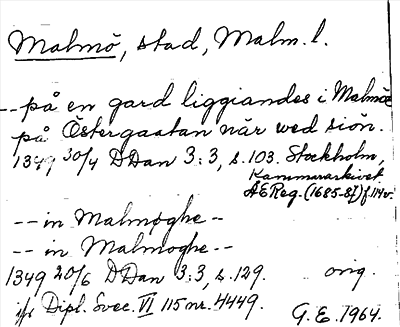 Malmö, stad, Malm. l.
-- på en gard liggiandes i Malmöe
på Östergaatan när wed siön.
1349 30/4 DDan 3:3, s. 103. Stockholm,
Kammararkivet
ÄEReg. (1685-87) f 114v.
-- in Malmøghe --
-- in Malmoghe --
1349 20/6 DDan 3:3, s. 129. orig.
jfr Dipl. Svec. VI 115 nr. 4449.
G. E. 1964.